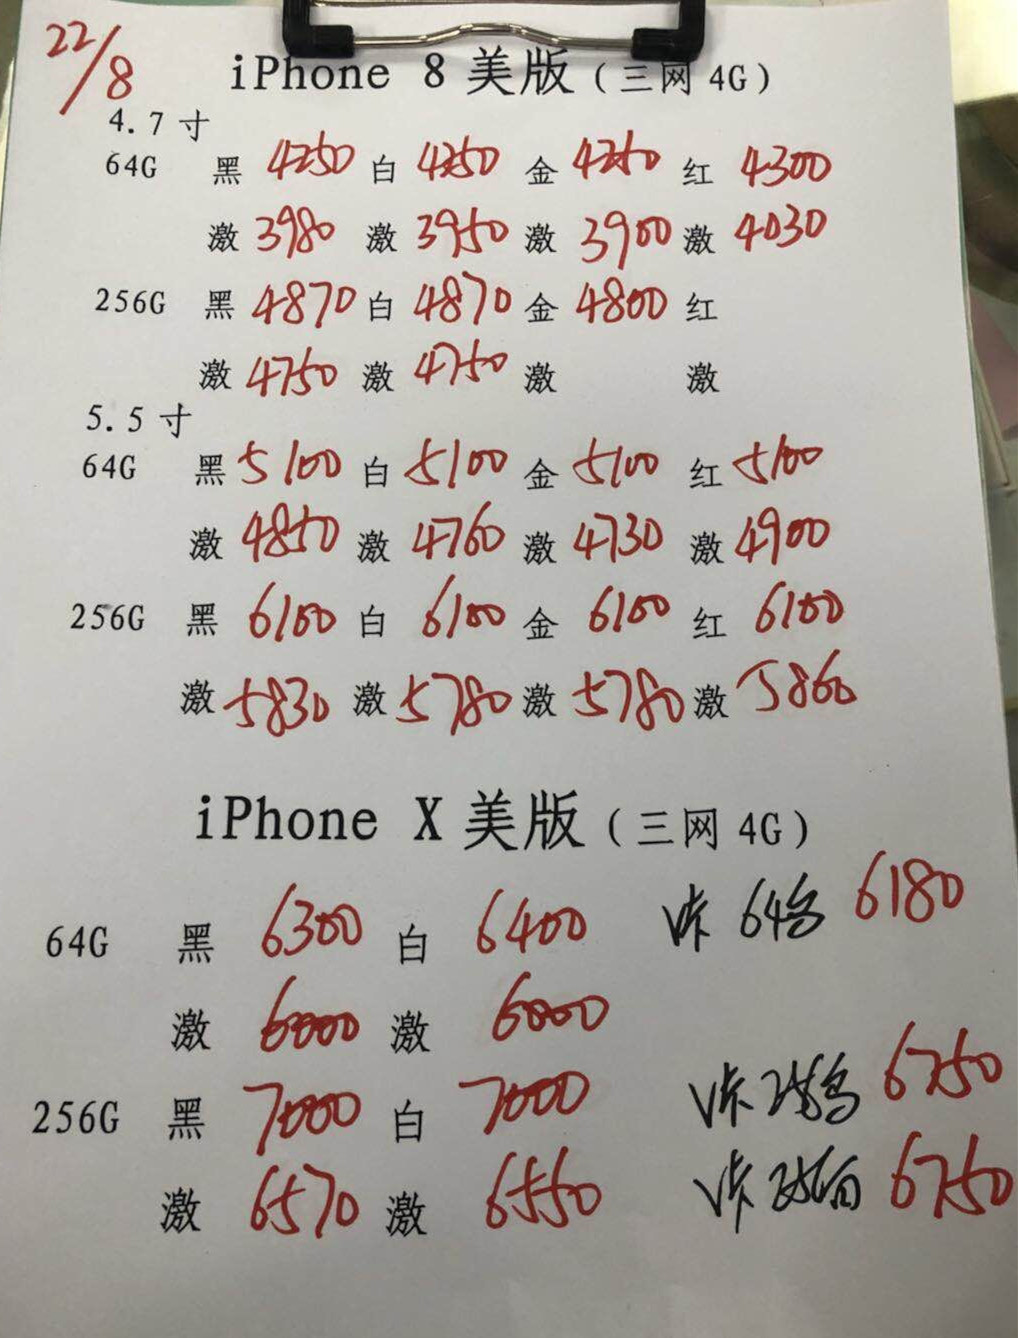 22/8
iPhone 8 美版（三网 4G）
4.7 寸
64G 黑 4250 白 4250 金 4250 红 4300
激 3980 激 3950 激 3900 激 4030
256G 黑 4870 白 4870 金 4800 红
激 4750 激 4750 激 激
5.5 寸
64G 黑 5100 白 5100 金 5100 红 5100
激 4850 激 4760 激 4730 激 4900
256G 黑 6100 白 6100 金 6100 红 6100
激 5830 激 5780 激 5780 激 5860
iPhone X 美版（三网 4G）
64G 黑 6300 白 6400 咔 64 6180
激 6000 激 6000
256G 黑 7000 白 7000 咔 256 6750
激 6570 激 6550 咔 256白 6750